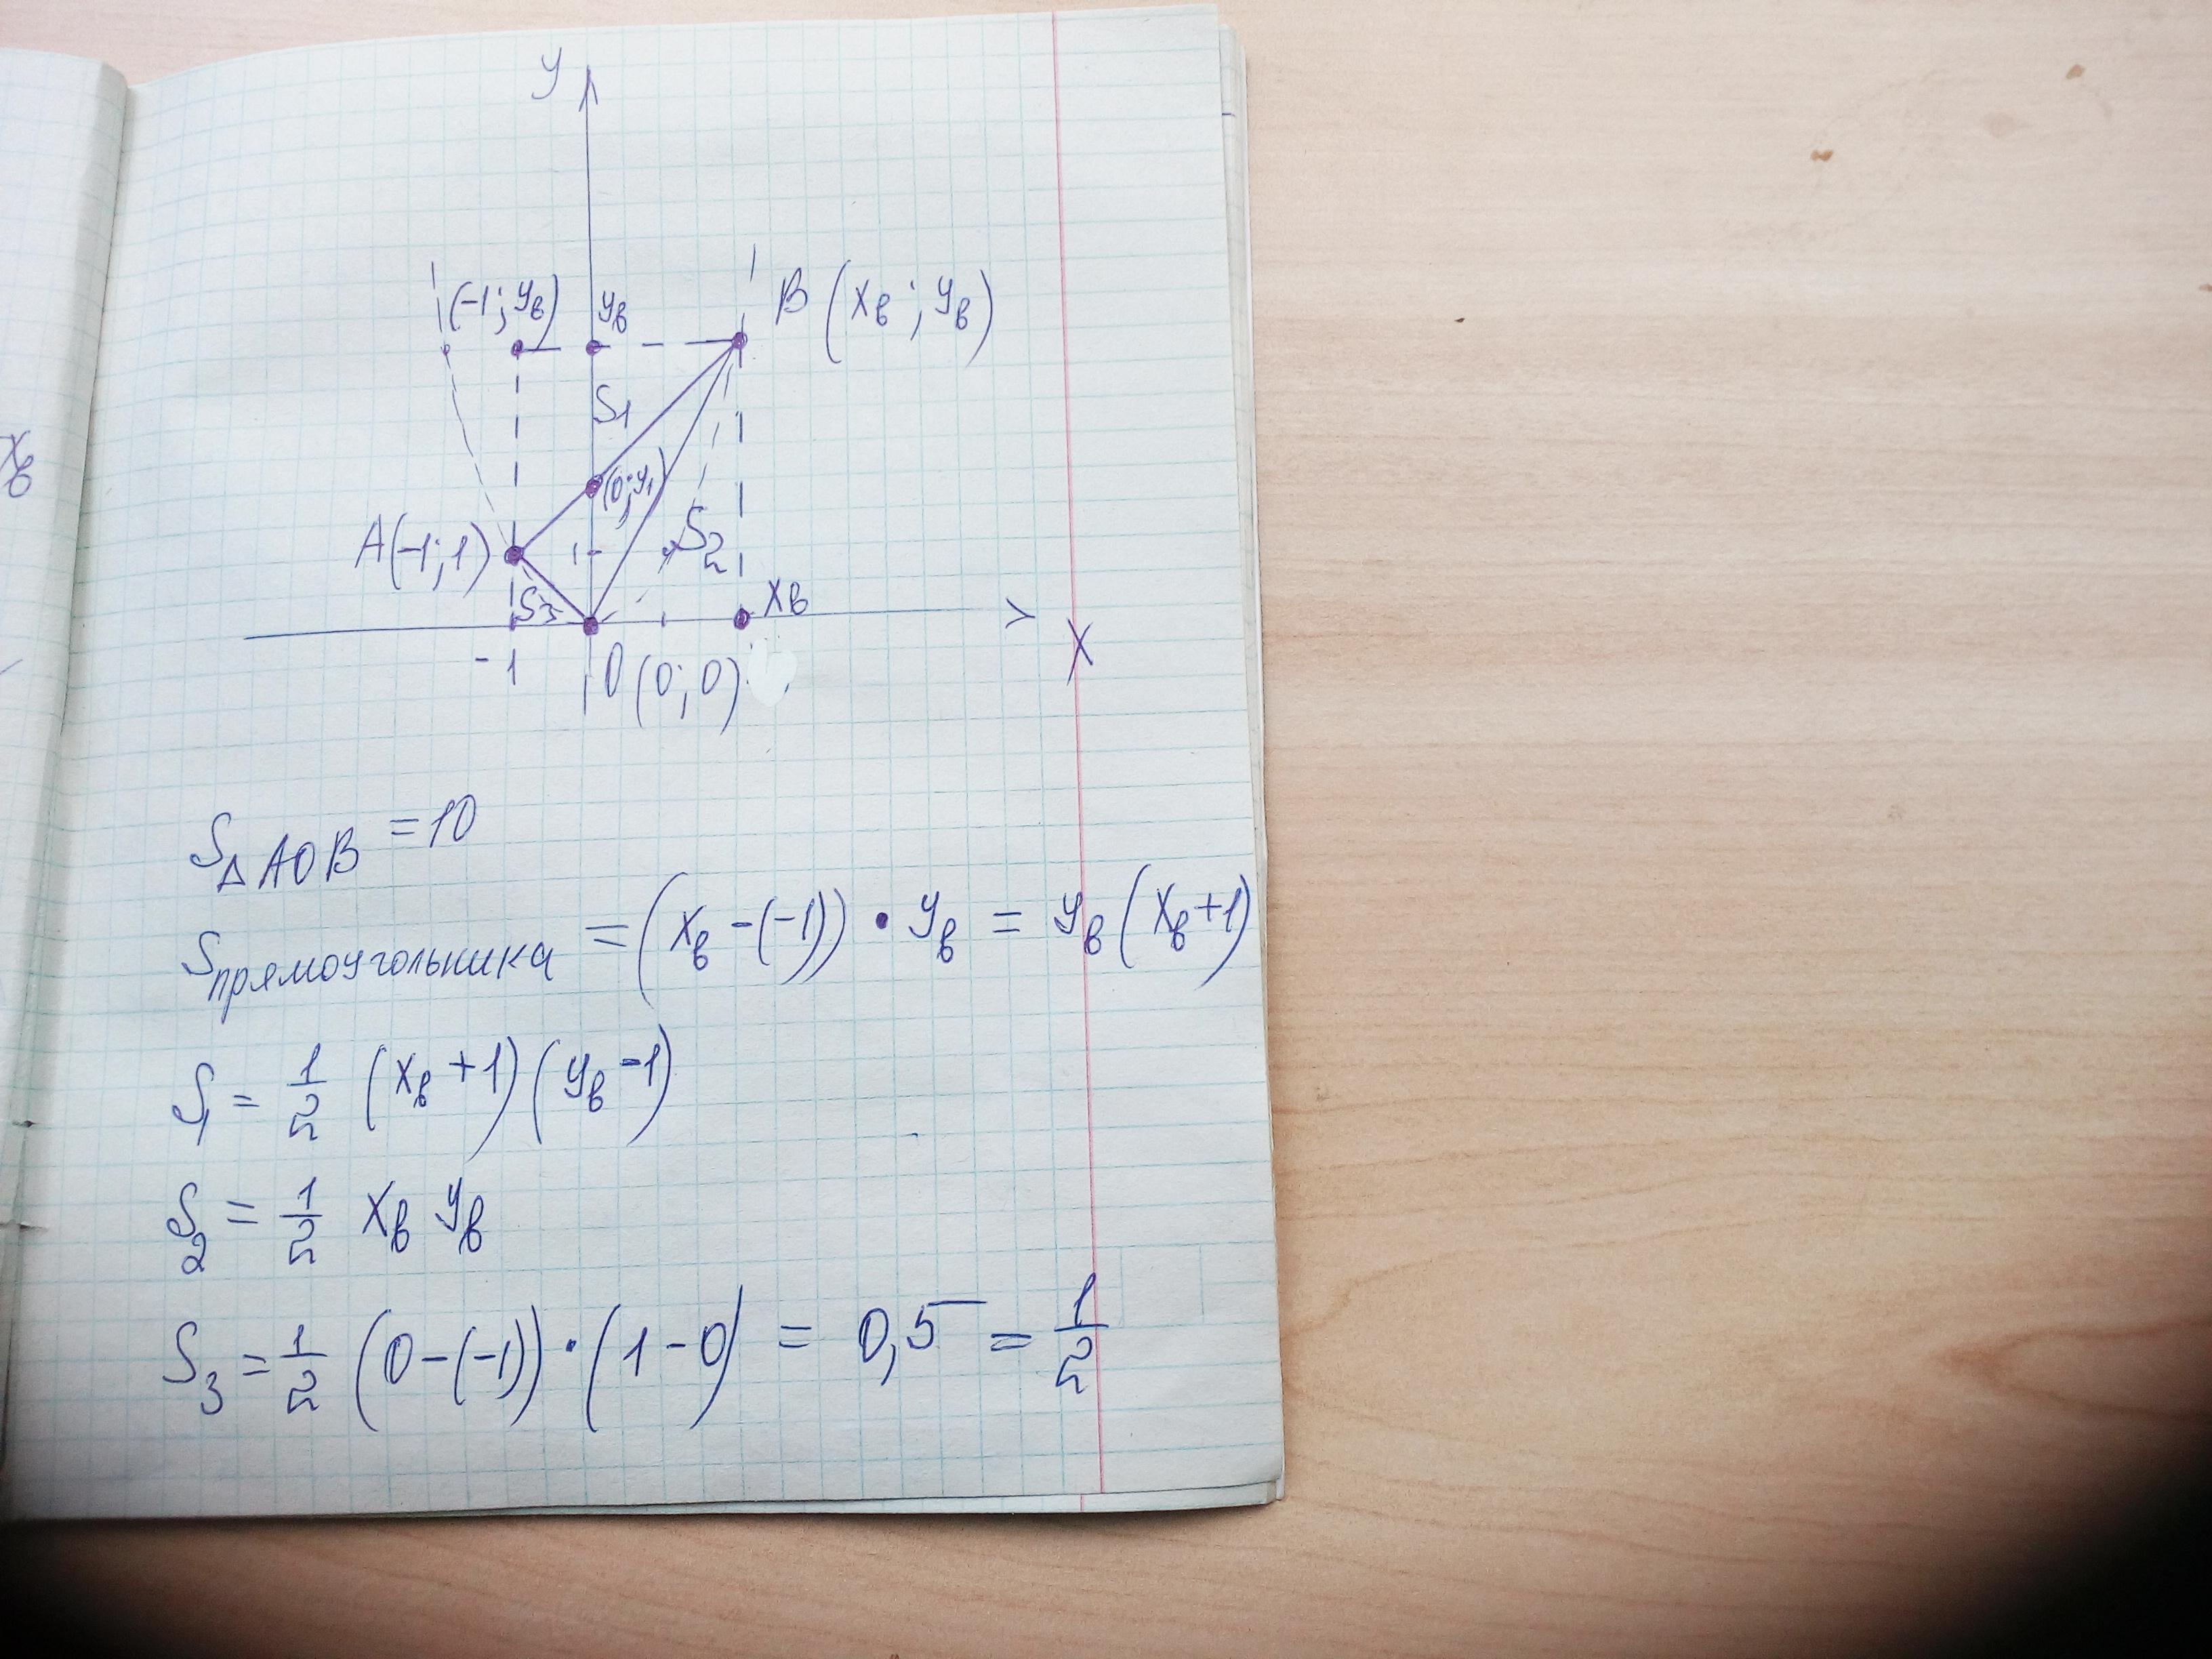 y
(-1; yв) yв B (xв ; yв)
S1
(0; y1)
xв
A(-1; 1) 1 S2
S3 xв
-1 O (0; 0) X
S△AOB = 10
Sпрямоугольника = (xв - (-1)) • yв = yв (xв + 1)
S1 = 1/2 (xв + 1)(yв - 1)
S2 = 1/2 xв yв
S3 = 1/2 (0 - (-1)) · (1 - 0) = 0,5 = 1/2